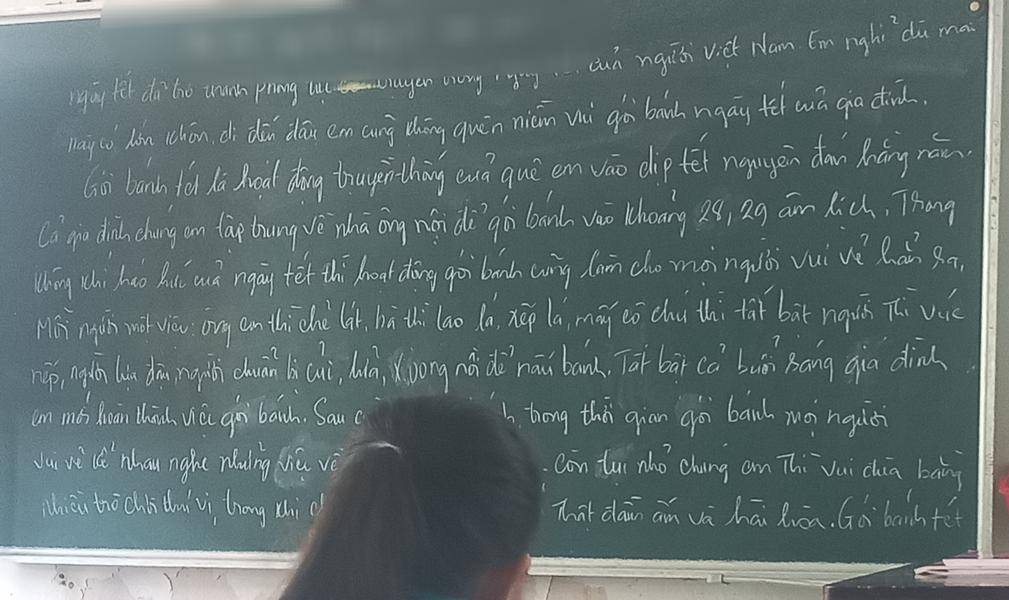 ngày tết đã trở thành phong tục truyền của người Việt Nam. Em nghĩ dù mai
này có lớn khôn, đi đến đâu em cũng không quên niềm vui gói bánh ngày tết của gia đình.
Gói bánh tét là hoạt động truyền thống của quê em vào dịp tết nguyên đán hằng năm.
Cả gia đình chúng em tập trung về nhà ông nội để gói bánh vào khoảng 28, 29 âm lịch. Trong
không khí háo hức của ngày tết thì hoạt động gói bánh cũng làm cho mọi người vui vẻ hẳn ra,
Mỗi người một việc: ông em thì chẻ lạt, bà thì lao lá, xếp lá, mấy cô chú thì tất bật người thì vút
nếp, người lựa đậu, người chuẩn bị củi, lửa, Xoong nồi để nấu bánh. Tất bật cả buổi sáng gia đình
em mới hoàn thành việc gói bánh. Sau trong thời gian gói bánh mọi người
vui vẻ kể nhau nghe những việc về . Còn tụi nhỏ chúng em thì vui đùa bằng
nhiều trò chơi thú vị, trong khi Thật đầm ấm và hài hòa. Gói bánh tét